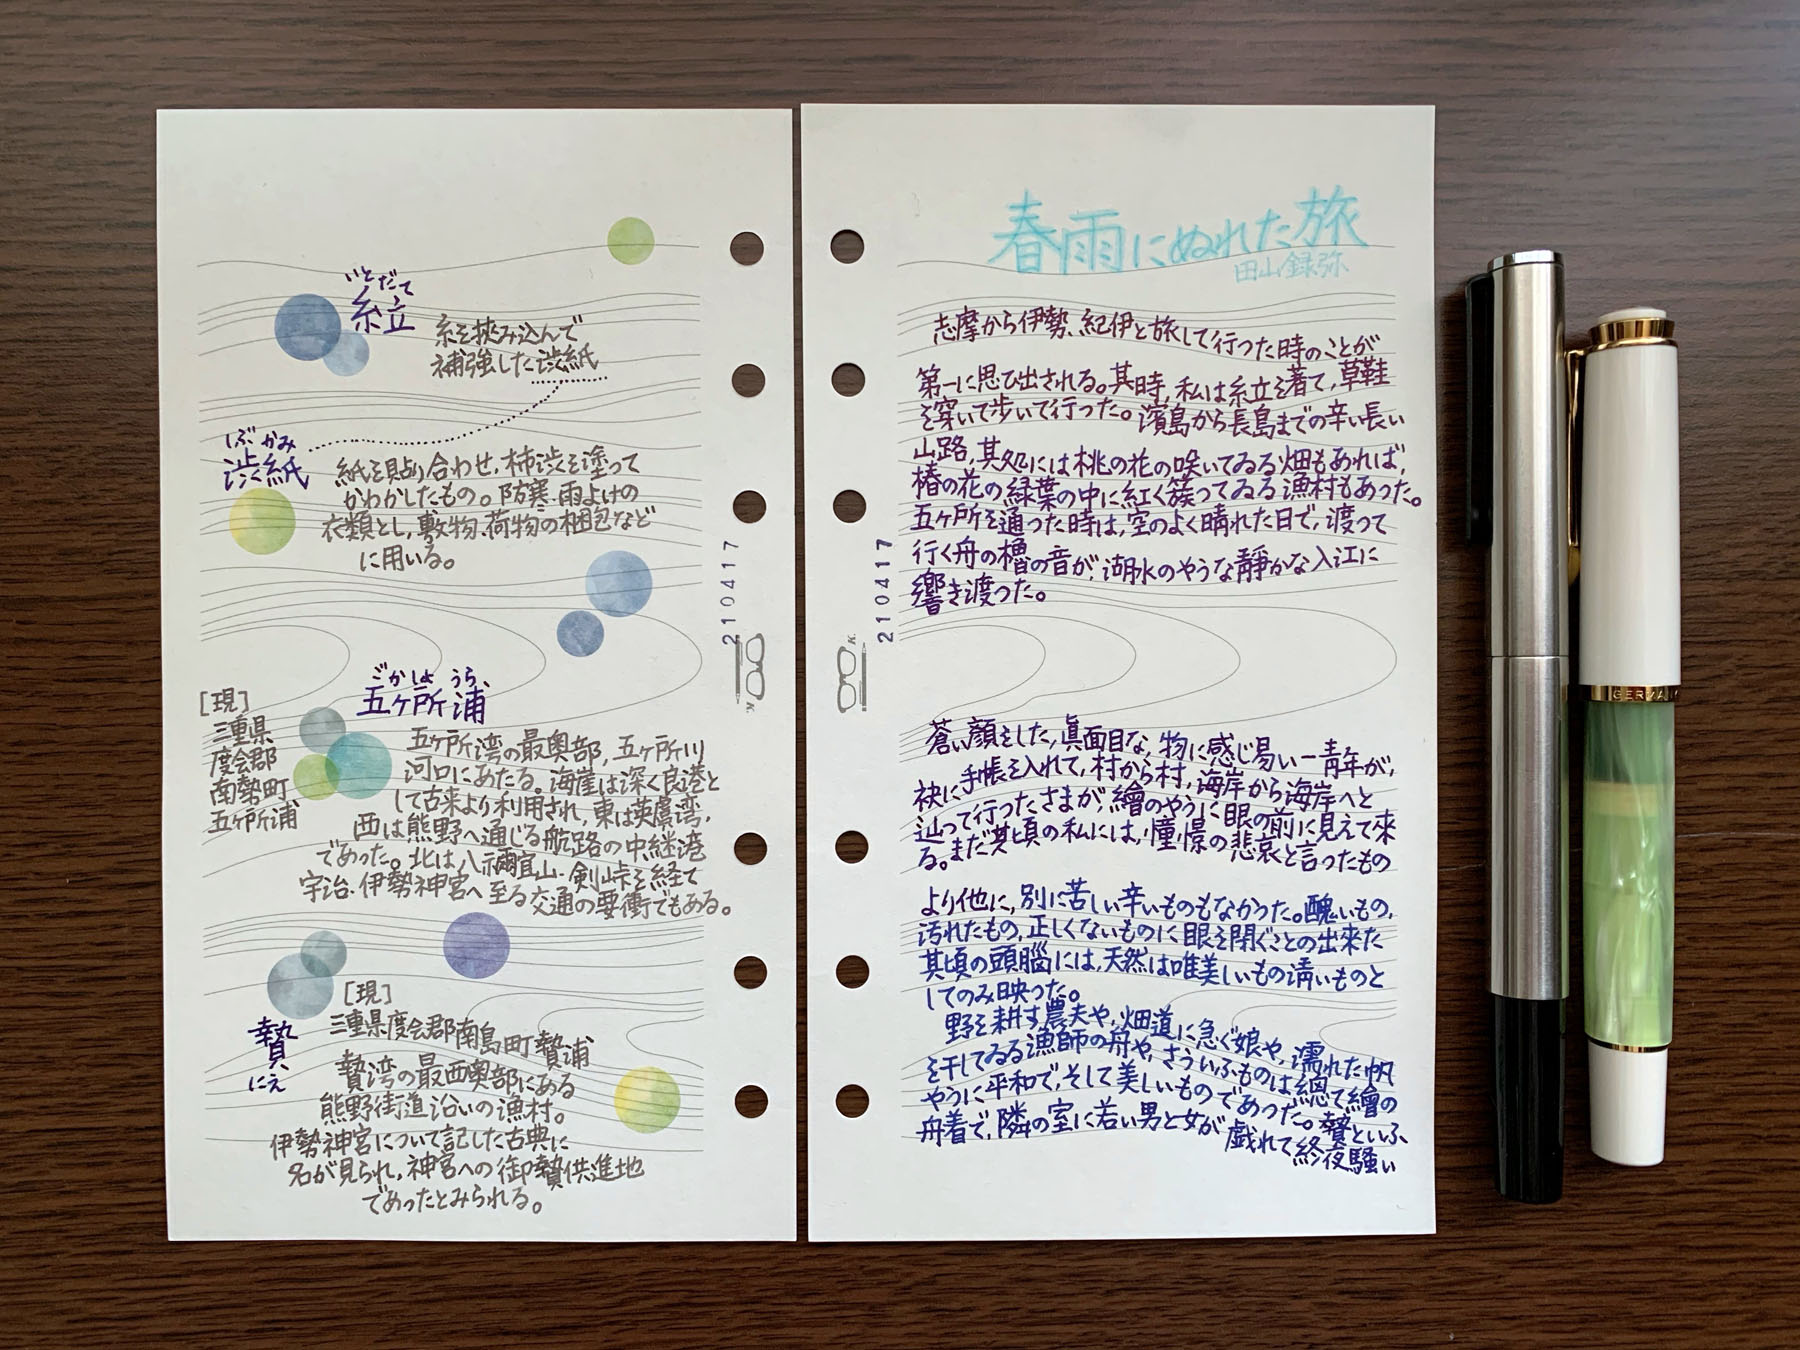 いとだて
糸立
糸を挟み込んで
補強した渋紙
しぶかみ
渋紙
紙を貼り合わせ、柿渋を塗って
かわかしたもの。防寒・雨よけの
衣類とし、敷物、荷物の梱包など
に用いる。
210417
K.
ごかしょうら
五ヶ所浦
[現]
三重県
度会郡
南勢町
五ヶ所浦
五ヶ所湾の最奥部、五ヶ所川
河口にあたる。海崖は深く良港と
して古来より利用され、東は英虞湾、
西は熊野へ通じる航路の中継港
であった。北は八禰宜山・剣峠を経て
宇治・伊勢神宮へ至る交通の要衝でもある。
贄
にえ
[現]
三重県度会郡南島町贄浦
贄湾の最西奥部にある
熊野街道沿いの漁村。
伊勢神宮について記した古典に
名が見られ、神宮への御贄供進地
であったとみられる。
春雨にぬれた旅
田山録弥
志摩から伊勢、紀伊と旅して行つた時のことが
第一に思ひ出される。其時、私は糸立を着て、草鞋
を穿いて歩いて行つた。濱島から長島までの辛い長い
山路、其処には桃の花の咲いてゐる畑もあれば、
椿の花の緑葉の中に紅く簇つてゐる漁村もあつた。
五ヶ所を通つた時は、空のよく晴れた日で、渡つて
行く舟の櫓の音が、湖水のやうな靜かな入江に
響き渡つた。
210417
K.
蒼い顔をした、眞面目な、物に感じ易い一青年が、
袂に手帳を入れて、村から村、海岸から海岸へと
辿つて行つたさまが、繪のやうに眼の前に見えて來
る。まだ其頃の私には、憧憬の悲哀と言つたもの
より他に、別に苦しい辛いものもなかつた。醜いもの、
汚れたもの、正しくないものに眼を閉ぐことの出來た
其頃の頭腦には、天然は唯美しいもの清いものと
してのみ映つた。
野を耕す農夫や、畑道に急ぐ娘や、濡れた帆
を干してゐる漁師の舟や、さういふものは總て繪の
やうに平和で、そして美しいものであつた。贄といふ
舟着で、隣の室に若い男と女が戯れて終夜騒い
GERMANY